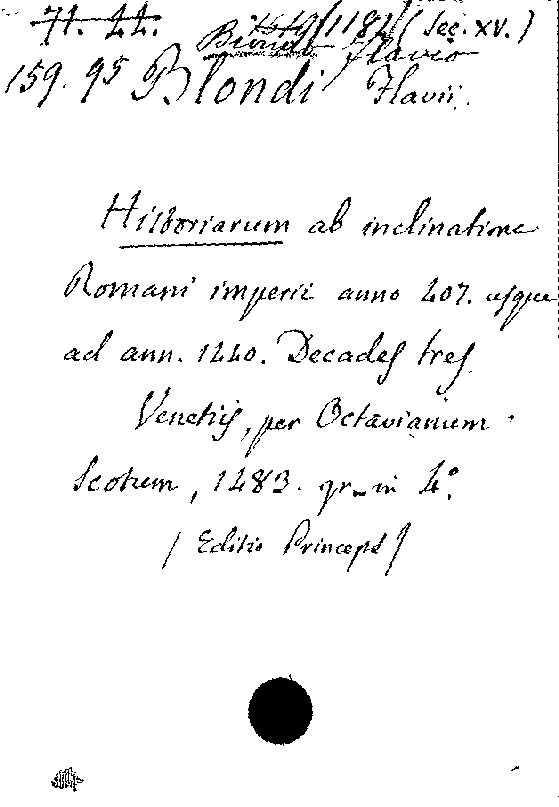 71. 44. 1649/1181/(Sec. XV.)
Biondo Flavio
159. 95 Blondi Flavii.
Historiarum ab inclinatione
Romani imperii anno 407. usque
ad ann. 1440. Decades tres
Venetiis, per Octavianum
Scotum, 1483. gr. in 4°.
(Editio Princeps)